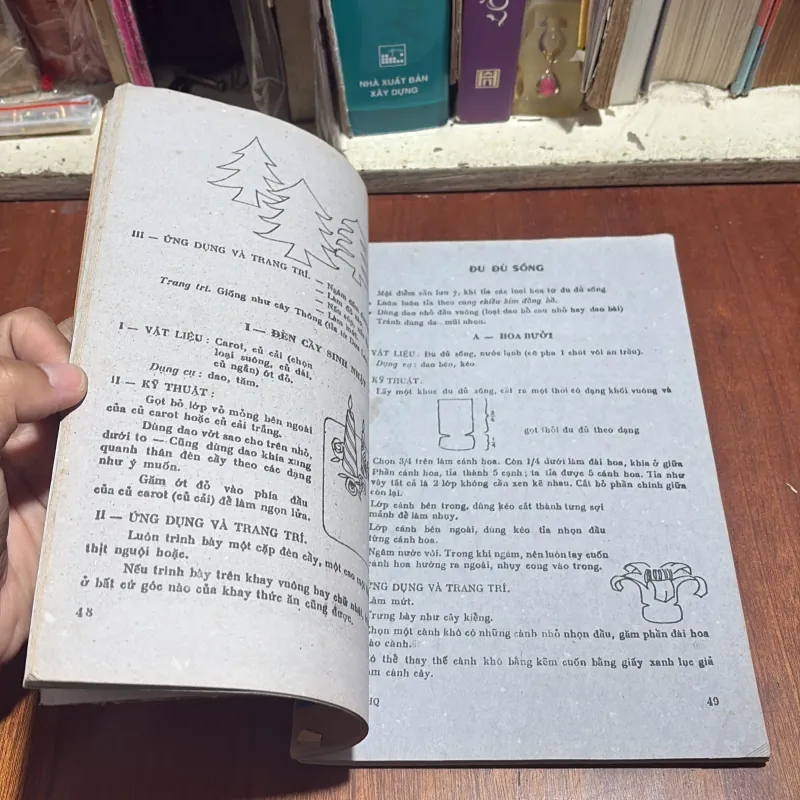 NHÀ XUẤT BẢN
XÂY DỰNG
III — ỨNG DỤNG VÀ TRANG TRÍ.
— Ngâm
— Làm
— Nếu
— Làm
Trang trí. Giống như cây Thông (tỉa từ
I — ĐÈN CẦY SINH NHẬT
I — VẬT LIỆU : Carot, củ cải (chọn
loại suông, củ dài,
củ ngắn) ớt đỏ.
Dụng cụ : dao, tăm.
II — KỸ THUẬT :
Gọt bỏ lớp vỏ mỏng bên ngoài
của củ carot hoặc củ cải trắng.
Dùng dao vớt sao cho trên nhỏ,
dưới to — Cũng dùng dao khía xung
quanh thân đèn cầy theo các dạng
như ý muốn.
Gắm ớt đỏ vào phía đầu
của củ carot (củ cải) để làm ngọn lửa.
II — ỨNG DỤNG VÀ TRANG TRÍ.
Luôn trình bày một cặp đèn cầy, một cao một
thịt nguội hoặc.
Nếu trình bày trên khay vuông hay chữ nhật,
ở bất cứ góc nào của khay thức ăn cũng được.
48
ĐU ĐỦ SỐNG
Một điểm cần lưu ý, khi tỉa các loại hoa từ đu đủ sống
• Luôn luôn tỉa theo cùng chiều kim đồng hồ.
• Dùng dao nhỏ đầu vuông (loại dao bổ cau nhỏ hay dao bài)
Tránh dùng dao mũi nhọn.
A — HOA BƯỞI
VẬT LIỆU : Đu đủ sống, nước lạnh (có pha 1 chút vôi ăn trầu).
Dụng cụ : dao bén, kéo.
KỸ THUẬT:
Lấy một khúc đu đủ sống, cắt ra một thỏi có dạng khối vuông và
gọt thỏi đu đủ theo dạng
3/4
1/4
Chọn 3/4 trên làm cánh hoa. Còn 1/4 dưới làm đài hoa, khía ở giữa
Phần cánh hoa, tỉa thành 5 cạnh; ta tỉa được 5 cánh hoa. Tỉa như
vậy tất cả là 2 lớp không cần xen kẽ nhau. Cắt bỏ phần chính giữa
còn lại.
Lớp cánh bên trong, dùng kéo cắt thành từng sợi
mảnh để làm nhụy.
Lớp cánh bên ngoài, dùng kéo tỉa nhọn đầu
từng cánh hoa.
Ngâm nước vôi. Trong khi ngâm, nên luôn tay cuốn
cánh hoa hướng ra ngoài, nhụy cong vào trong.
ỨNG DỤNG VÀ TRANG TRÍ.
Làm mứt.
Trưng bày như cây kiểng.
Chọn một cành khô có những cành nhỏ nhọn đầu, găm phần đài hoa
vào cành.
Có thể thay thế cành khô bằng kẽm cuốn bằng giấy xanh lục giả
làm cành cây.
HQ
49